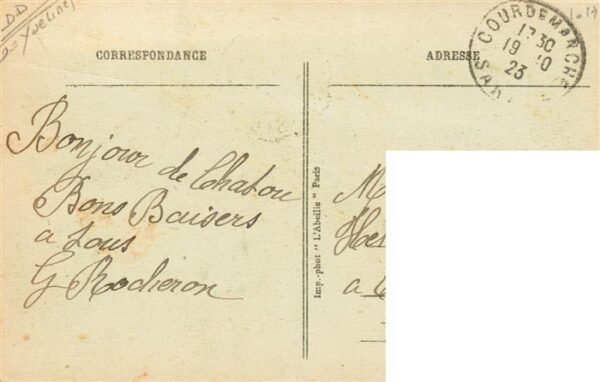 DD
Yvelines
CORRESPONDANCE
ADRESSE
COURDEMANCHE
17 30
19 10
23
SAR
Bonjour de Chatou
Bons Baisers
a tous
G Rocheron
Imp.-phot "L'Abeille" Paris
M
a